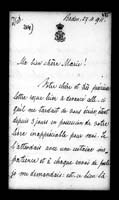 Baden, 29
Ma bien chère Marie!
Votre chère et très précieuse
lettre reçue hier a devancé celle
que me tardait de vous écrire étant
depuis 3 jours en possession de votre
livre inappréciable pour moi. Je
l'attendais avec une certaine im-
patience et à chaque envoi de poste
je me demandais: est-ce bien là